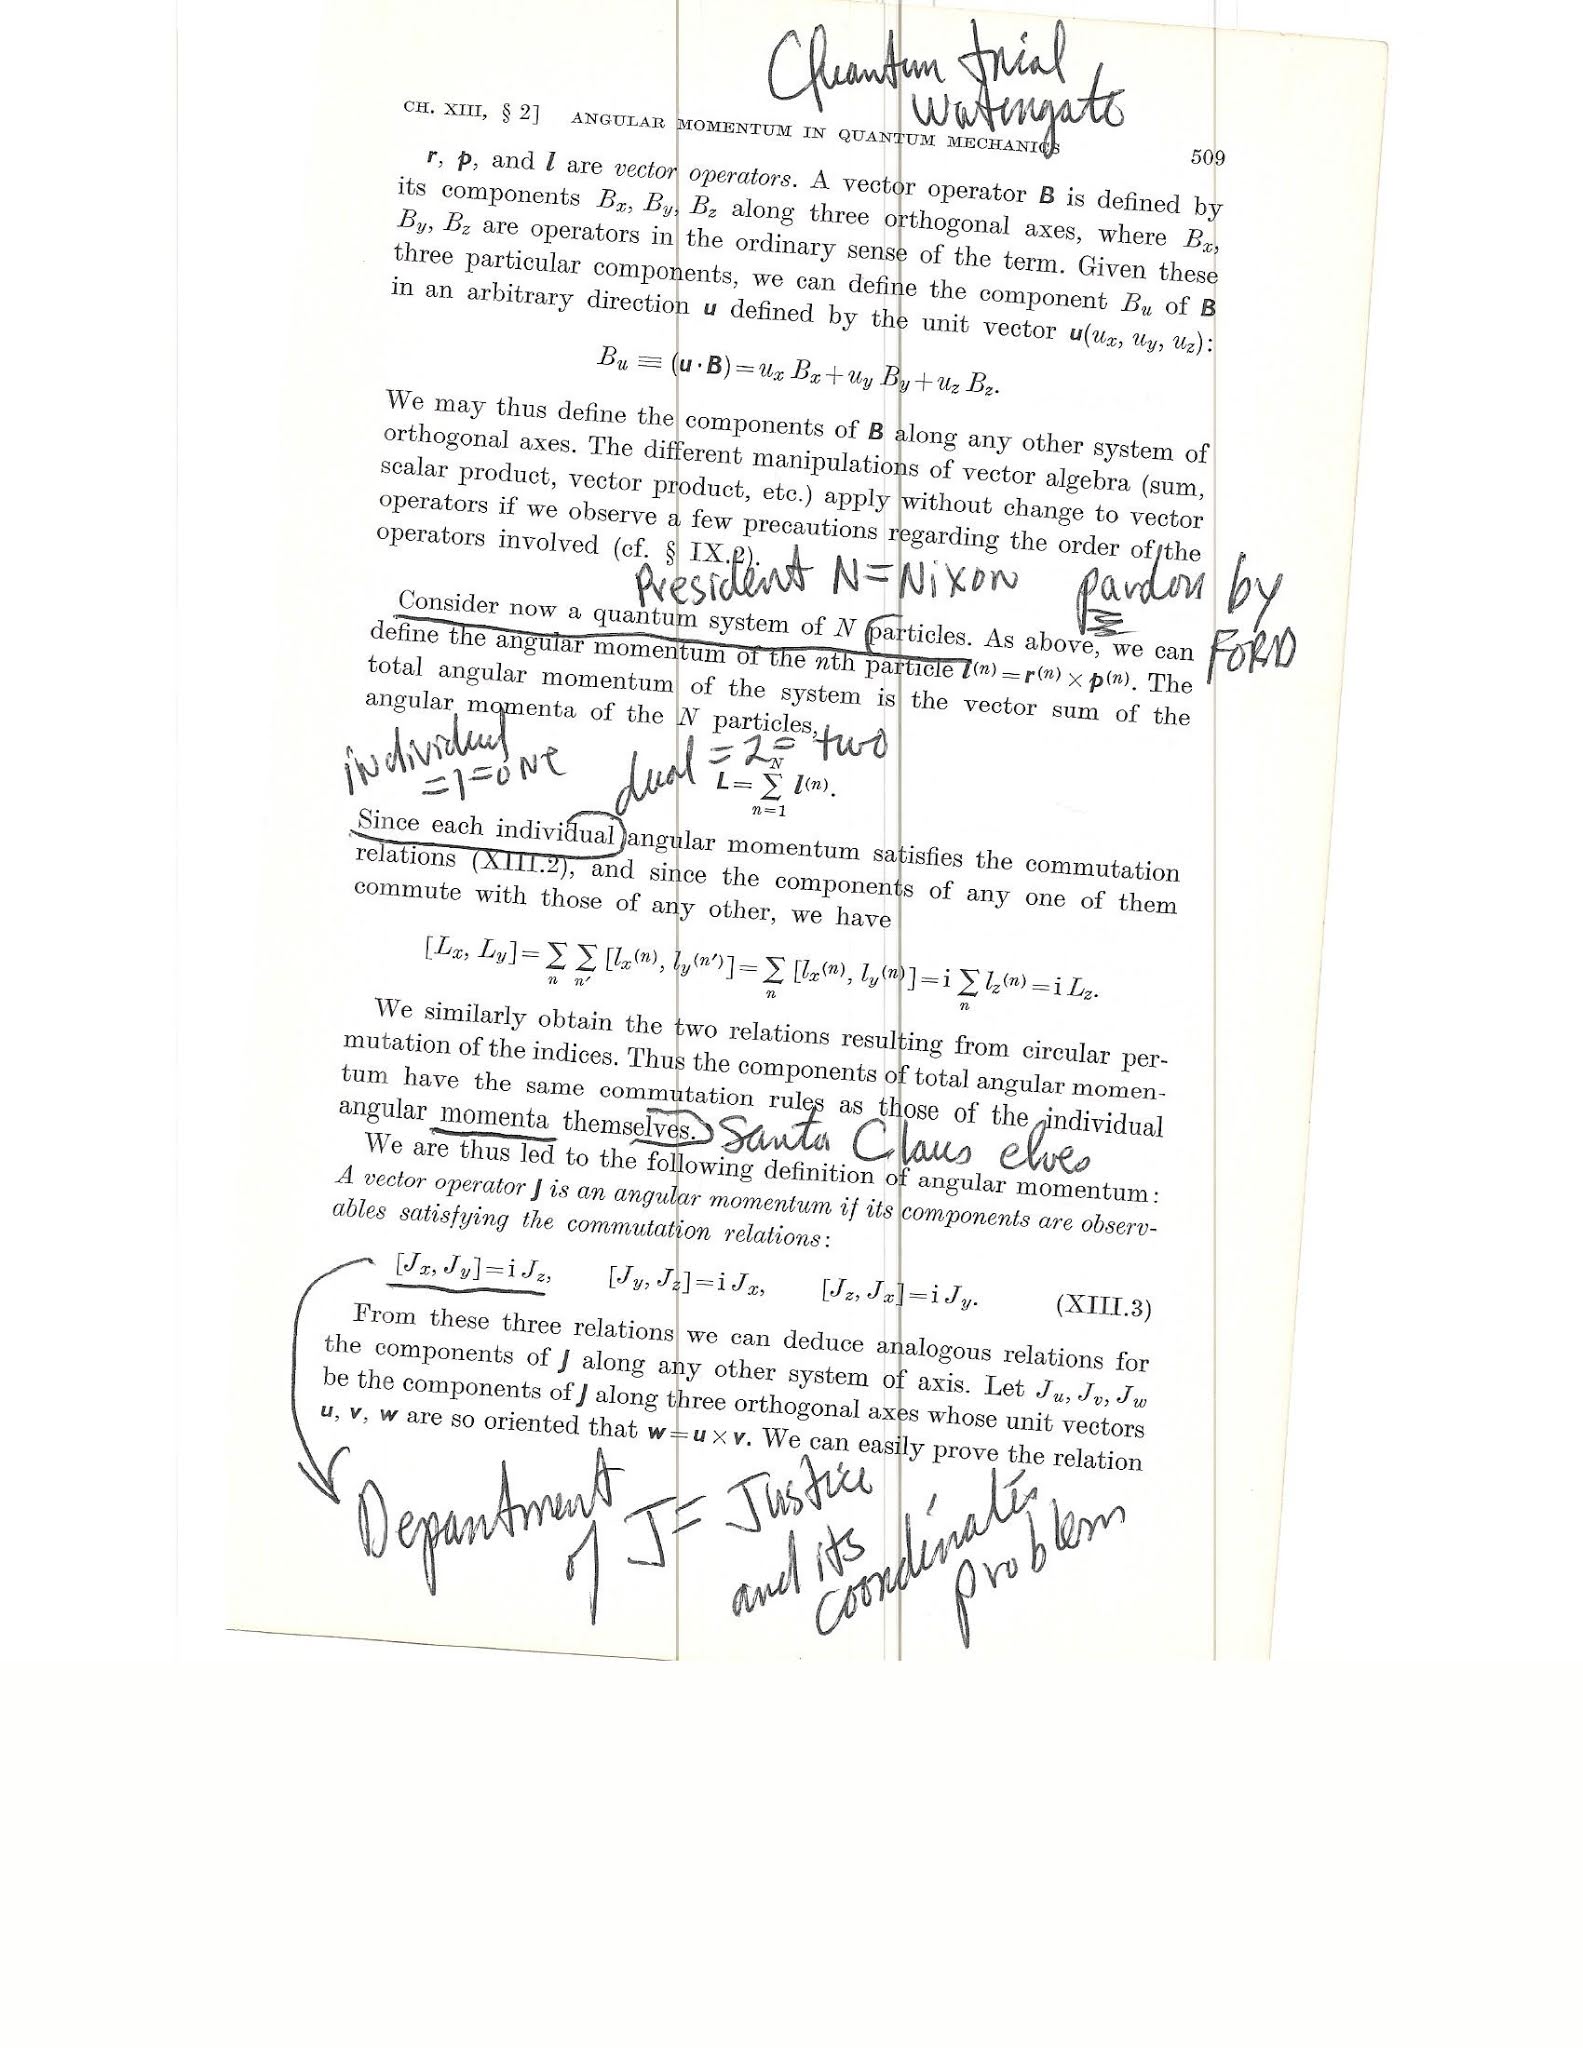 Quantum trial
Watergate
CH. XIII, § 2] ANGULAR MOMENTUM IN QUANTUM MECHANICS 509
r, p, and l are vector operators. A vector operator B is defined by
its components Bx, By, Bz along three orthogonal axes, where Bx,
By, Bz are operators in the ordinary sense of the term. Given these
three particular components, we can define the component Bu of B
in an arbitrary direction u defined by the unit vector u(ux, uy, uz):
Bu ≡ (u·B)=ux Bx+uy By+uz Bz.
We may thus define the components of B along any other system of
orthogonal axes. The different manipulations of vector algebra (sum,
scalar product, vector product, etc.) apply without change to vector
operators if we observe a few precautions regarding the order of the
operators involved (cf. § IX.2).
President N=Nixon pardon by
FORD
Consider now a quantum system of N particles. As above, we can
define the angular momentum of the nth particle l(n)=r(n)×p(n). The
total angular momentum of the system is the vector sum of the
angular momenta of the N particles,
individual
=1=one
dual =2= two
L= N∑n=1 l(n).
Since each individual angular momentum satisfies the commutation
relations (XIII.2), and since the components of any one of them
commute with those of any other, we have
[Lx, Ly]=∑n ∑n' [lx(n), ly(n')]=∑n [lx(n), ly(n)]=i ∑n lz(n)=i Lz.
We similarly obtain the two relations resulting from circular per-
mutation of the indices. Thus the components of total angular momen-
tum have the same commutation rules as those of the individual
angular momenta themselves. Santa Claus elves
We are thus led to the following definition of angular momentum:
A vector operator J is an angular momentum if its components are observ-
ables satisfying the commutation relations:
[Jx, Jy]=i Jz, [Jy, Jz]=i Jx, [Jz, Jx]=i Jy. (XIII.3)
From these three relations we can deduce analogous relations for
the components of J along any other system of axis. Let Ju, Jv, Jw
be the components of J along three orthogonal axes whose unit vectors
u, v, w are so oriented that w=u×v. We can easily prove the relation
Department
of J= Justice
and its
coordinates
problem